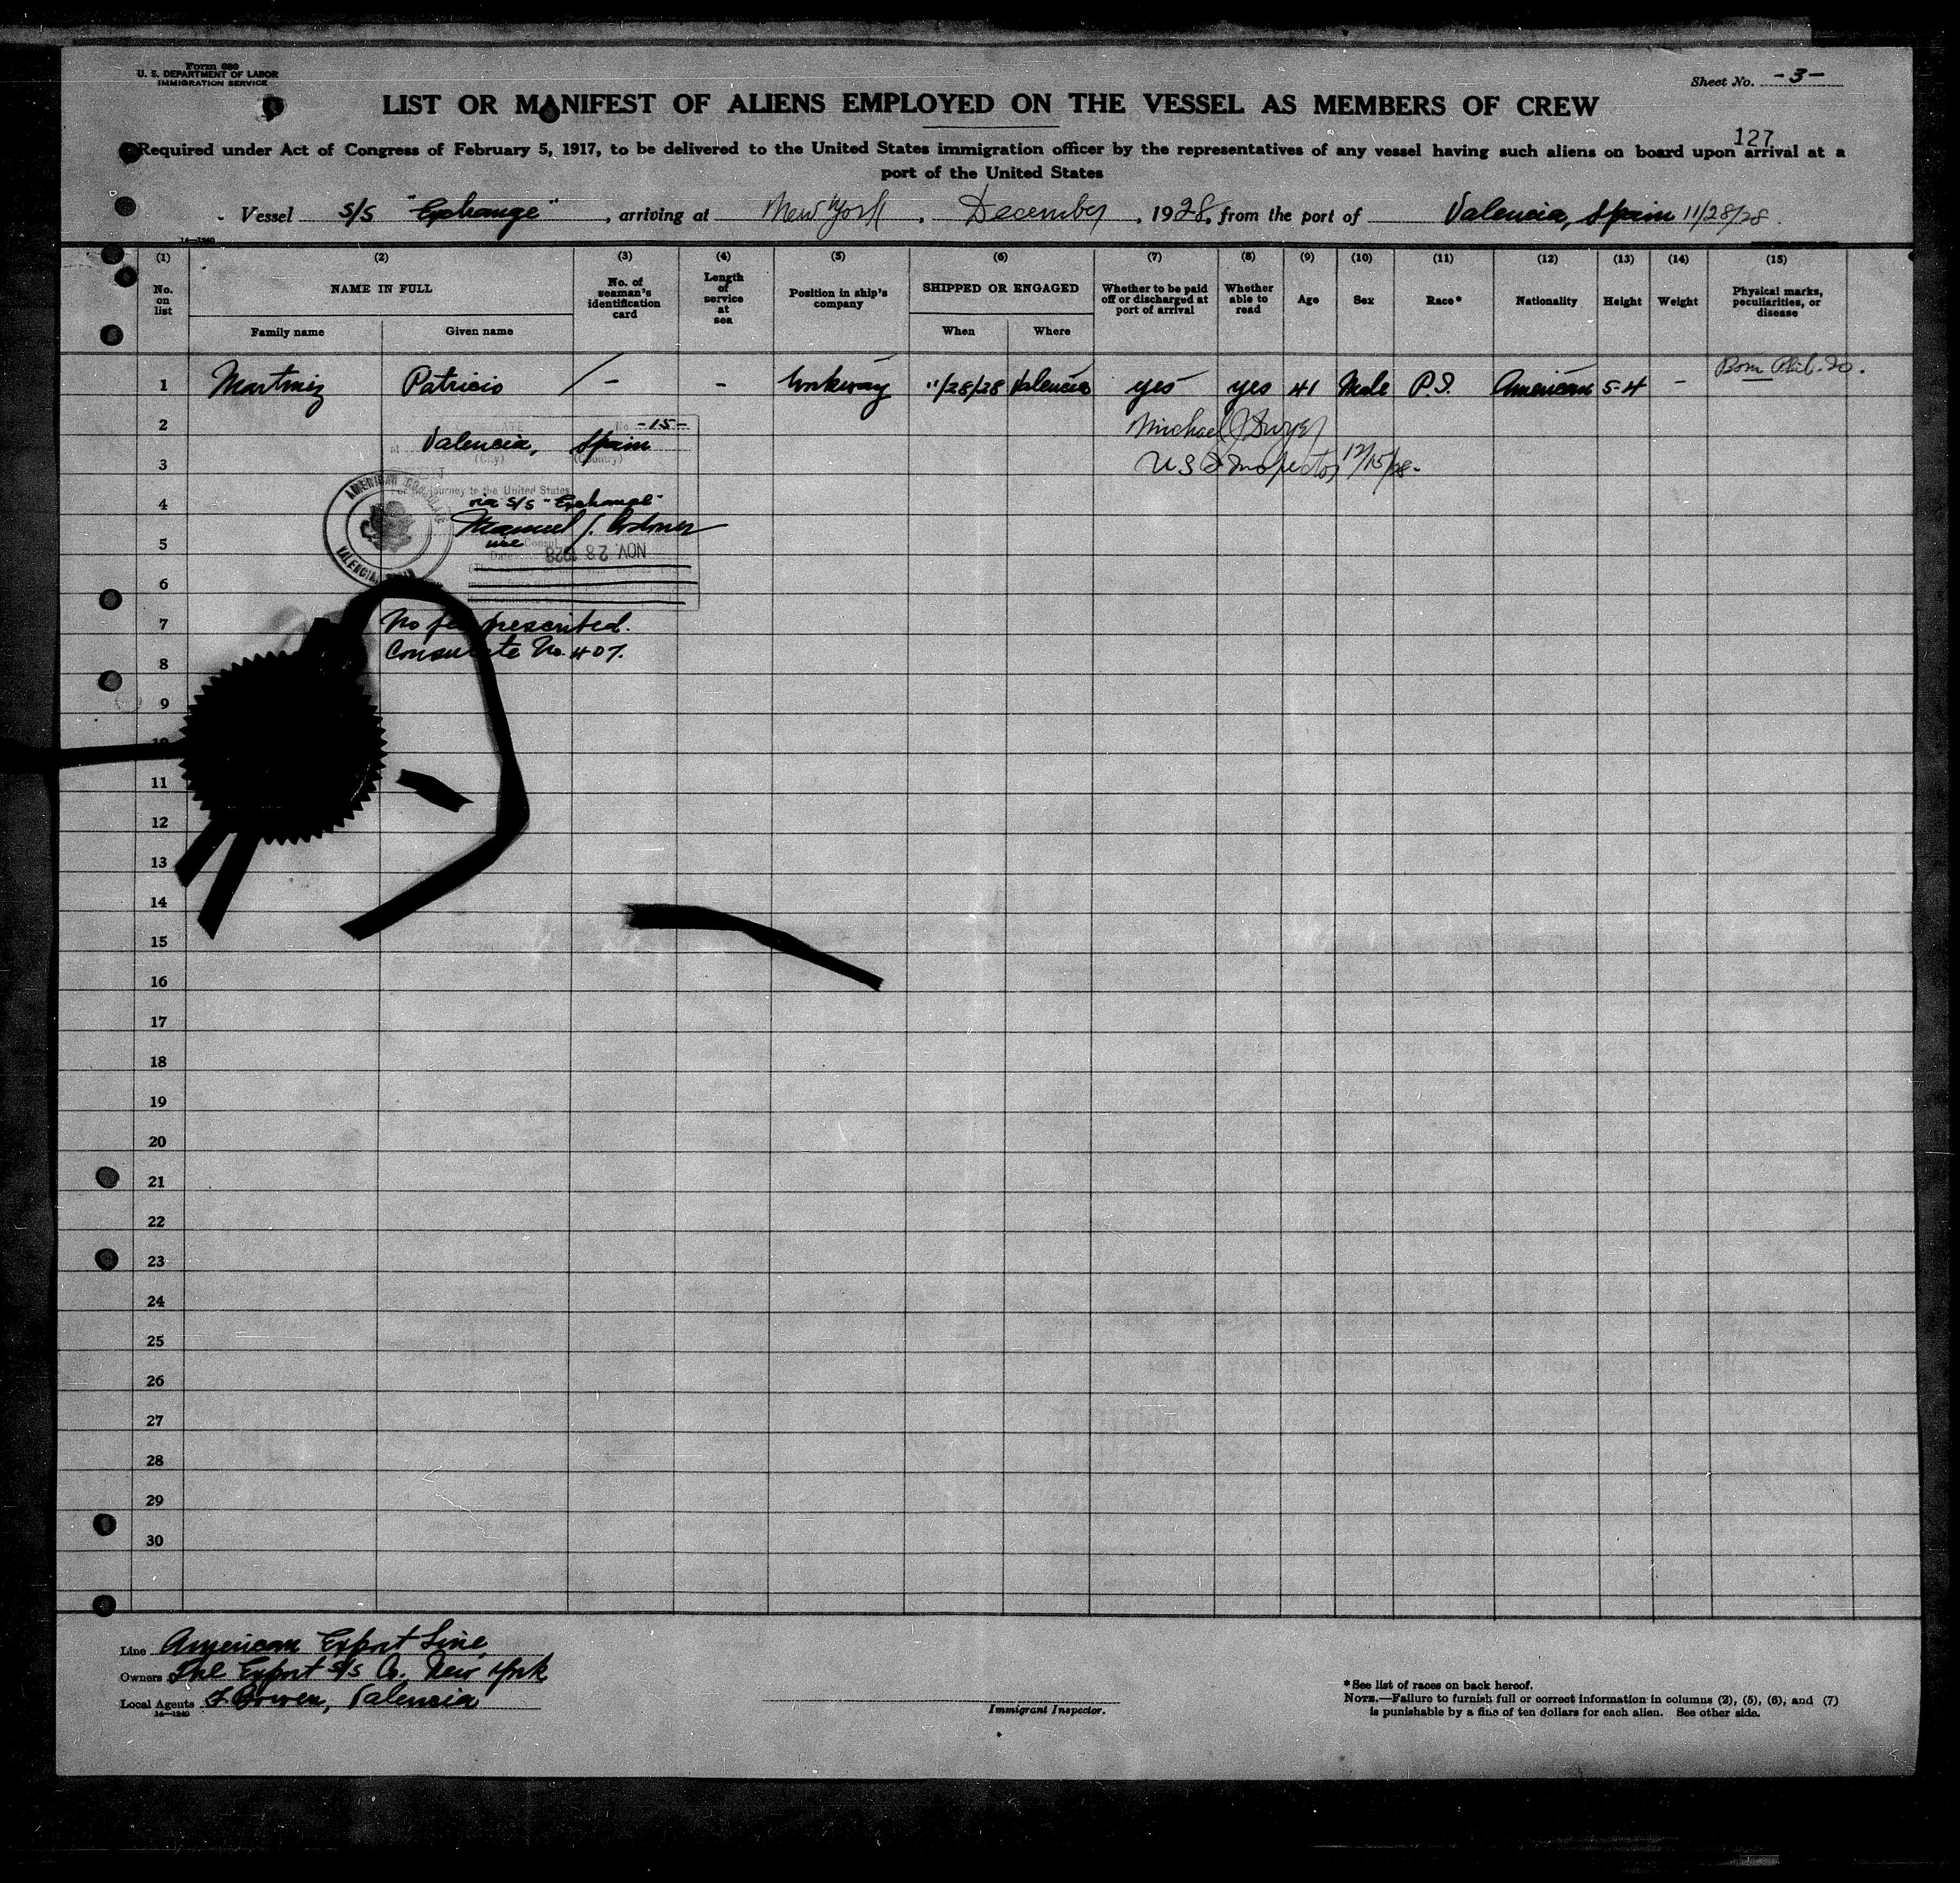 Form 680
U. S. DEPARTMENT OF LABOR
IMMIGRATION SERVICE
Sheet No. -3-
LIST OR MANIFEST OF ALIENS EMPLOYED ON THE VESSEL AS MEMBERS OF CREW
127
Required under Act of Congress of February 5, 1917, to be delivered to the United States immigration officer by the representatives of any vessel having such aliens on board upon arrival at a
port of the United States
Vessel S/S "Exchange", arriving at New York, December, 1928, from the port of Valencia, Spain 11/28/28
14—1240
(1) (2) (3) (4) (5) (6) (7) (8) (9) (10) (11) (12) (13) (14) (15)
No. on list
NAME IN FULL
Family name
Given name
No. of seaman's identification card
Length of service at sea
Position in ship's company
SHIPPED OR ENGAGED
When
Where
Whether to be paid off or discharged at port of arrival
Whether able to read
Age
Sex
Race*
Nationality
Height
Weight
Physical marks, peculiarities, or disease
1 Martinez Patricio - - Workway 11/28/28 Valencia yes yes 41 Male P.I. American 5-4 - Born Phil. Is.
2
No. -15-
Michael J Dwyer
Valencia, Spain
(City) (Country)
3
U S Inspector 12/15/28.
4
journey to the United States
via S/S "Exchange"
AMERICAN CONSULATE
VALENCIA, SPAIN
5
vice Consul
Date NOV. 28 1928
6
7
No fee prescribed.
Consulate No. 407.
8
9
10
11
12
13
14
15
16
17
18
19
20
21
22
23
24
25
26
27
28
29
30
Line American Export Line
Owners The Export S/S Co. New York
Local Agents Valencia
14—1240
Immigrant Inspector.
* See list of races on back hereof.
NOTE.—Failure to furnish full or correct information in columns (2), (5), (6), and (7)
is punishable by a fine of ten dollars for each alien. See other side.